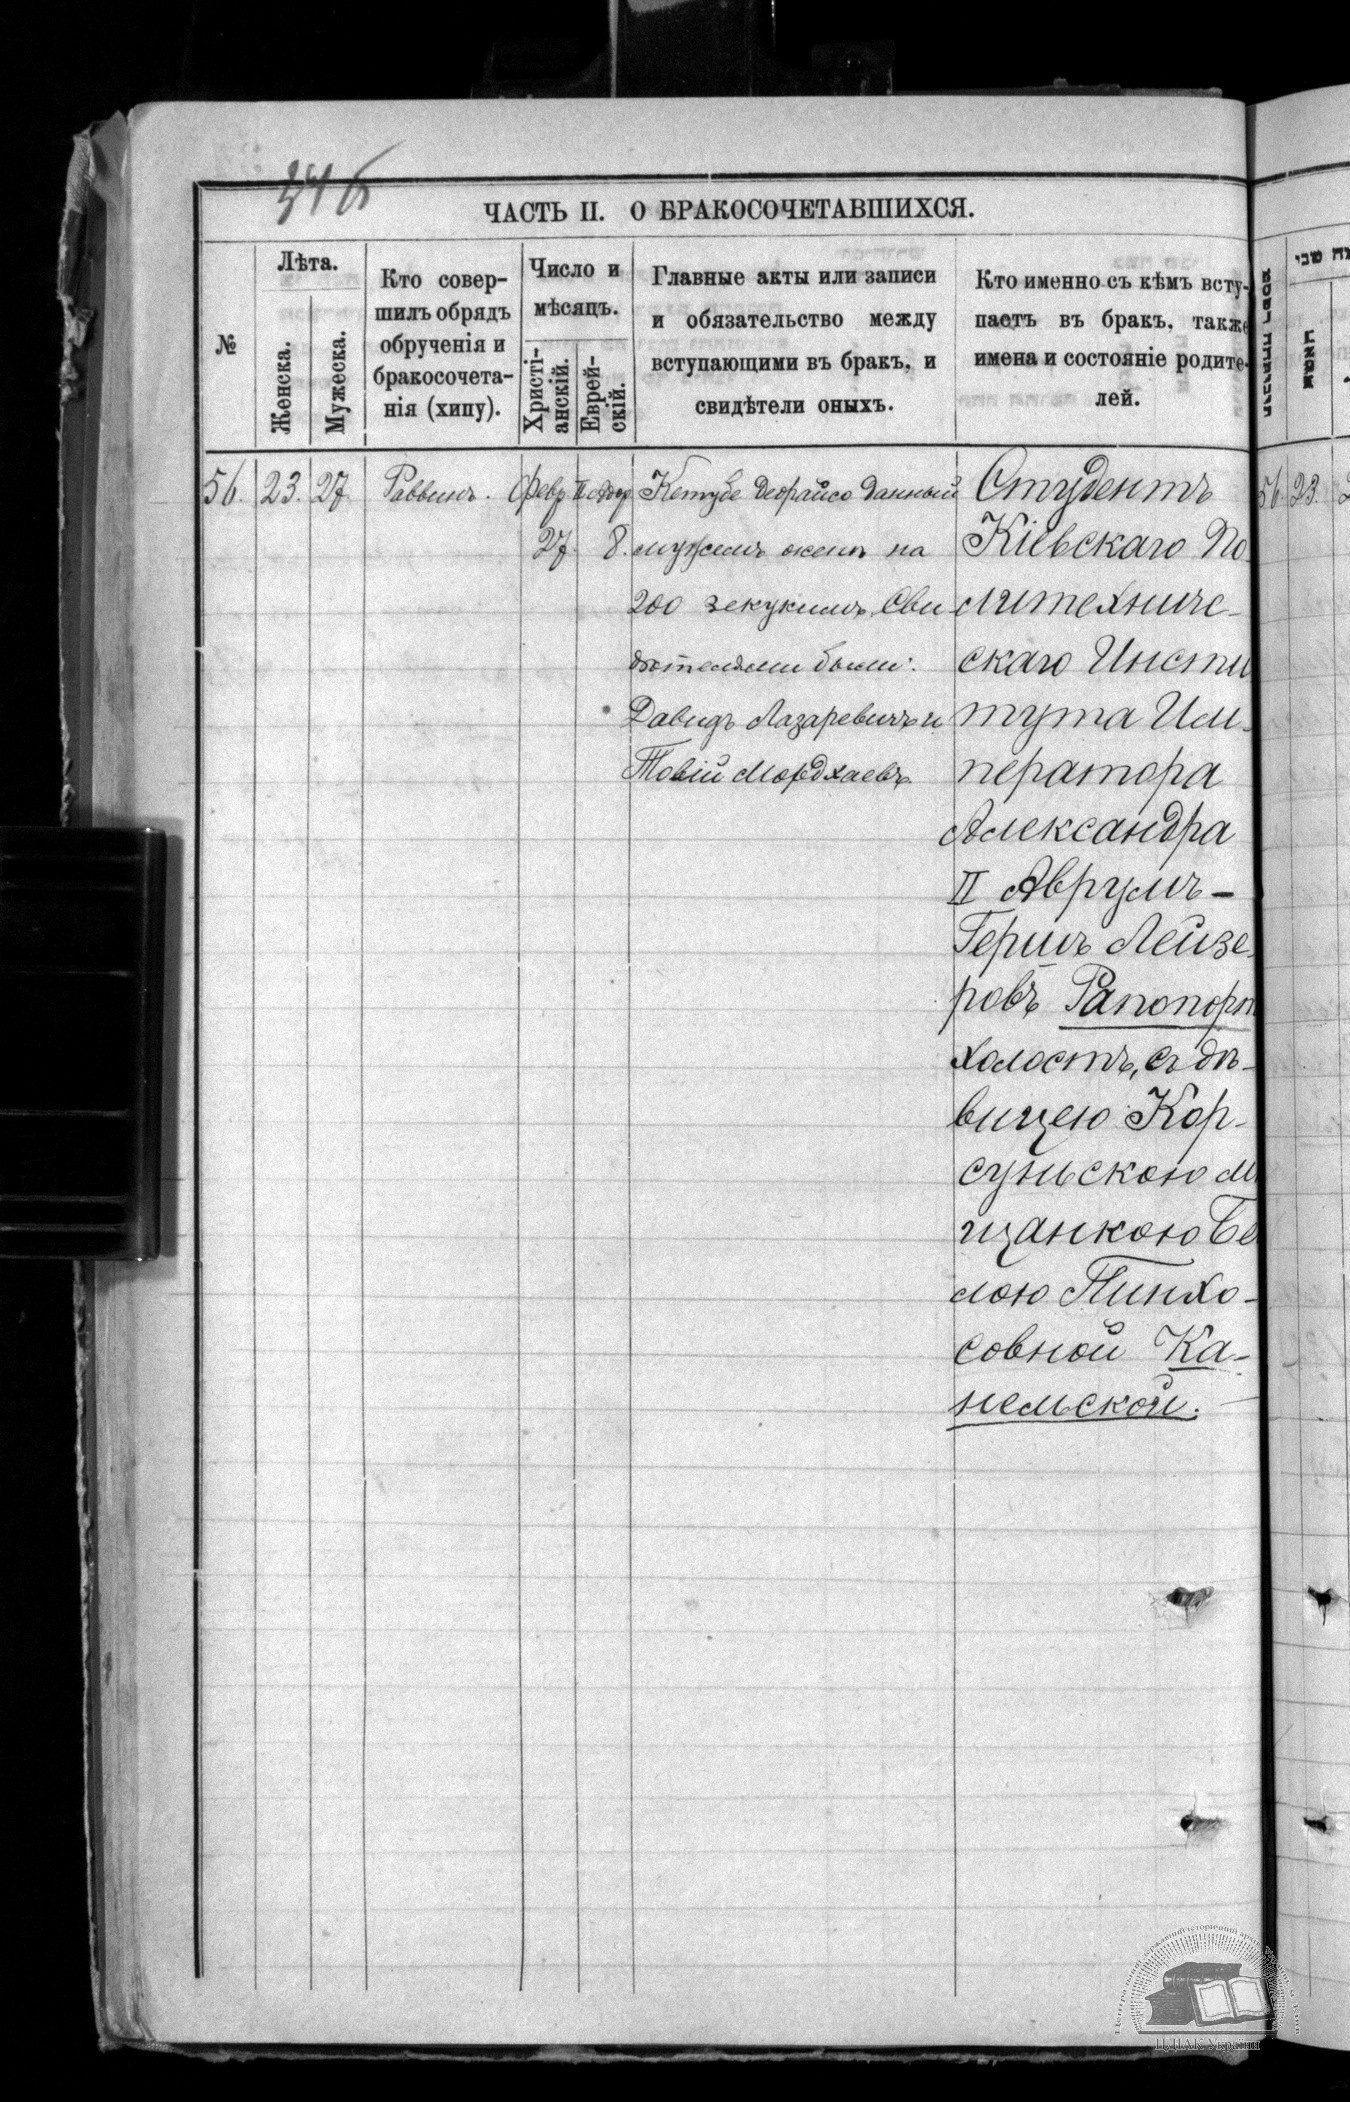 ЧАСТЬ II. О БРАКОСОЧЕТАВШИХСЯ.
№
Лѣта.
Женска.
Мужеска.
Кто совер-
шилъ обрядъ
обрученія и
бракосочета-
нія (хипу).
Число и
мѣсяцъ.
Христі-
анскій.
Еврей-
скій.
Главные акты или записи
и обязательство между
вступающими въ бракъ, и
свидѣтели оныхъ.
Кто именно съ кѣмъ всту-
паетъ въ бракъ, также
имена и состояніе родите-
лей.
56. 23. 27 Раввинъ. Февр. II Адор
27. 8.
Кетубе деорайсо данный
мужемъ женѣ на
200 зекукимъ, Сви
дѣтелями были:
Давидъ Лазаревичъ и
Товій Мордхаевъ
Студентъ
Кіевскаго По
литехниче-
скаго Инсти
тута Им-
ператора
Александра
II Аврумъ-
Гершъ Лейзе-
ровъ Рапопорт
холостъ, съ дѣ-
вицею Кор-
суньскою м
щанкою Бе
лою Пинхо-
совной Ка-
нельской.
56 23.
ЦДІАК України